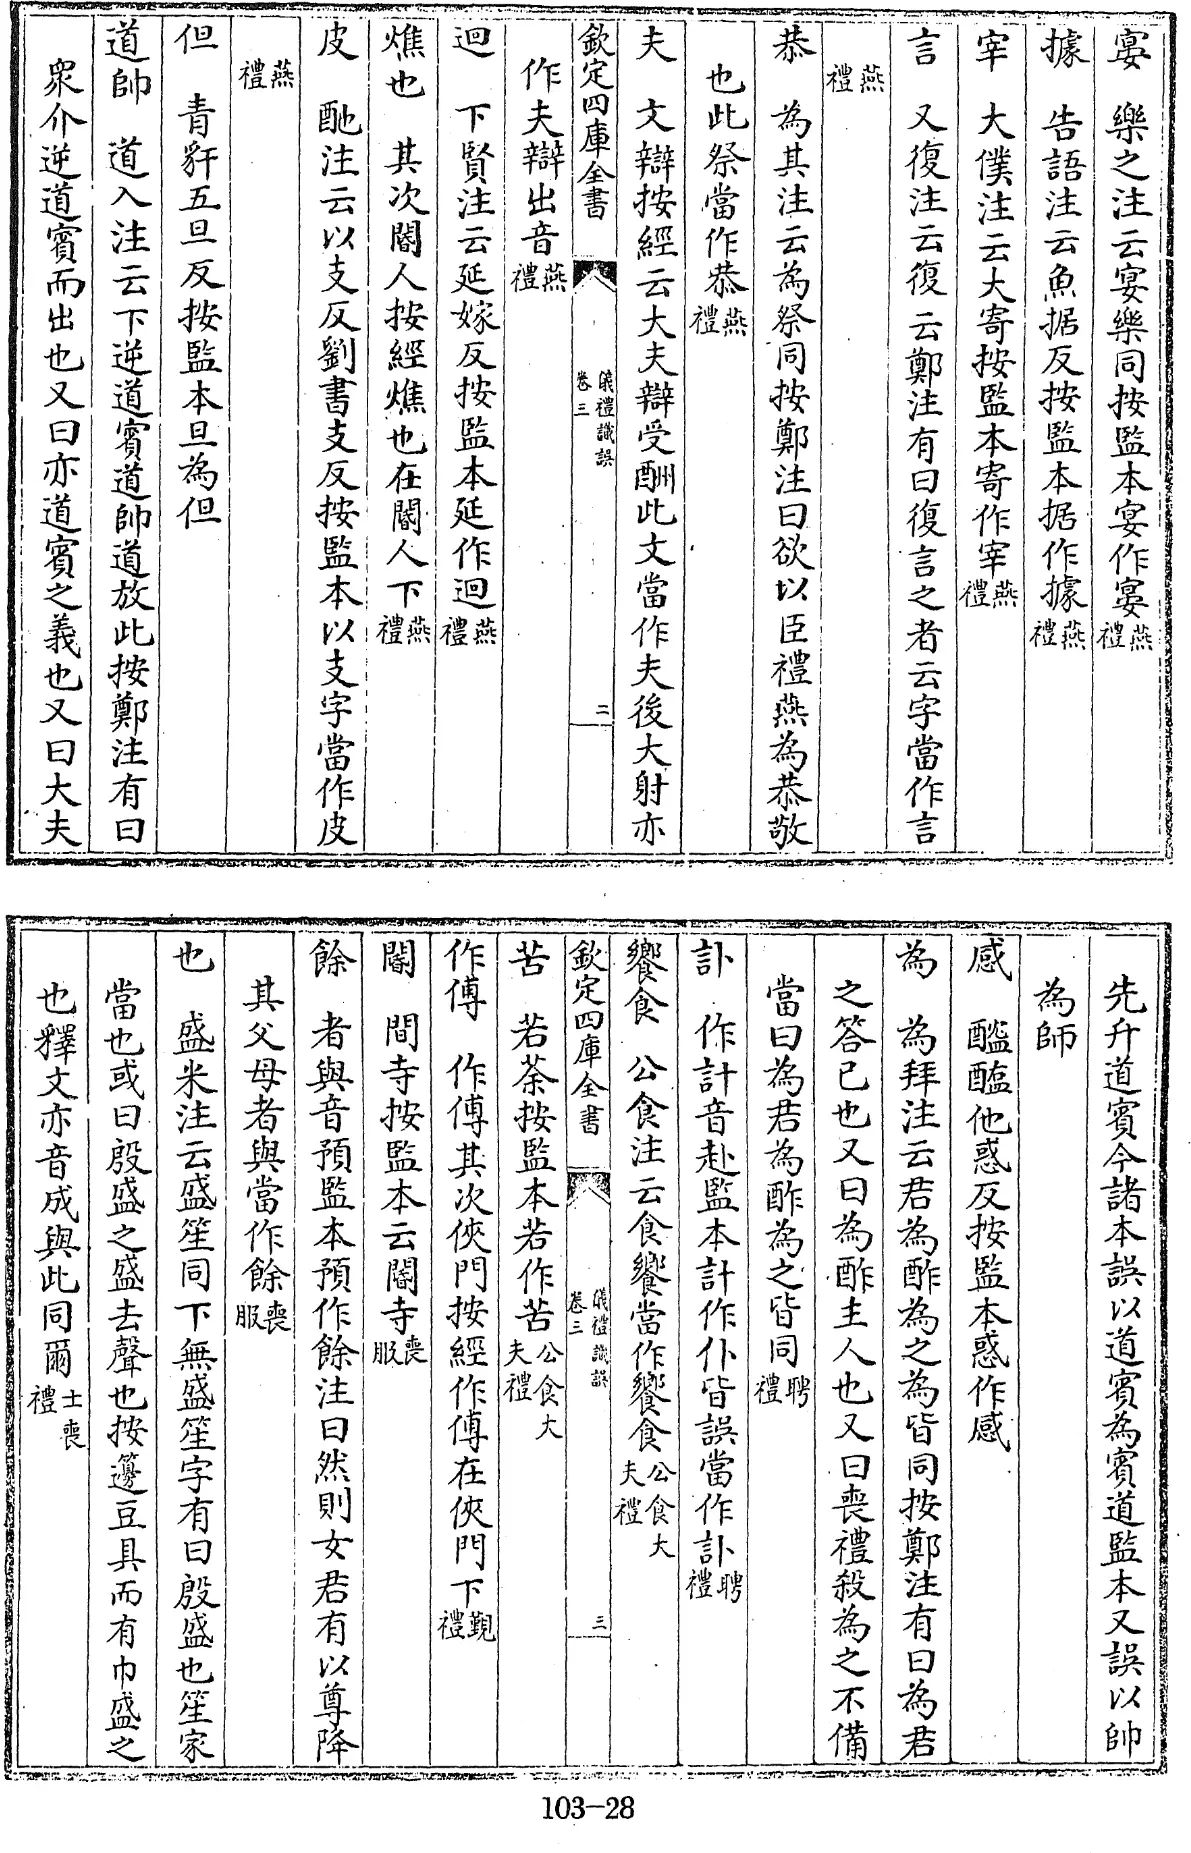 宴　樂之注云宴樂同按監本宴作宴燕禮
據　告語注云魚据反按監本据作據燕禮
宰　大僕注云大寄按監本寄作宰燕禮
言　又復注云復云鄭注有曰復言之者云字當作言
燕禮
恭　為其注云為祭同按鄭注曰欲以臣禮燕為恭敬
也此祭當作恭燕禮
夫　文辯按經云大夫辯受酬此文當作夫後大射亦
欽定四庫全書　儀禮識誤卷三　二
作夫辯出音燕禮
迴　下賢注云延嫁反按監本延作迴燕禮
燋也　其次閽人按經燋也在閽人下燕禮
皮　酏注云以支反劉書支反按監本以支字當作皮
燕禮
但　青豻五旦反按監本旦為但
道帥　道入注云下逆道賓道帥道放此按鄭注有曰
衆介逆道賓而出也又曰亦道賓之義也又曰大夫
先升道賓今諸本誤以道賓為賓道監本又誤以帥
為師
感　醓醢他惑反按監本惑作感
為　為拜注云君為酢為之為皆同按鄭注有曰為君
之答已也又曰為酢主人也又曰喪禮殺為之不備
當曰為君為酢為之皆同聘禮
訃　作計音赴監本計作仆皆誤當作訃聘禮
饗食　公食注云食饗當作饗食公食大夫禮
欽定四庫全書　儀禮識誤卷三　三
苦　若荼按監本若作苦公食大夫禮
作傅　作傅其次俠門按經作傅在俠門下覲禮
閽　間寺按監本云閽寺喪服
餘　者與音預監本預作餘注曰然則女君有以尊降
其父母者與當作餘喪服
也　盛米注云盛笙同下無盛笙字有曰殷盛也笙家
當也或曰殷盛之盛去聲也按籩豆具而有巾盛之
也釋文亦音成與此同爾士喪禮
103-28